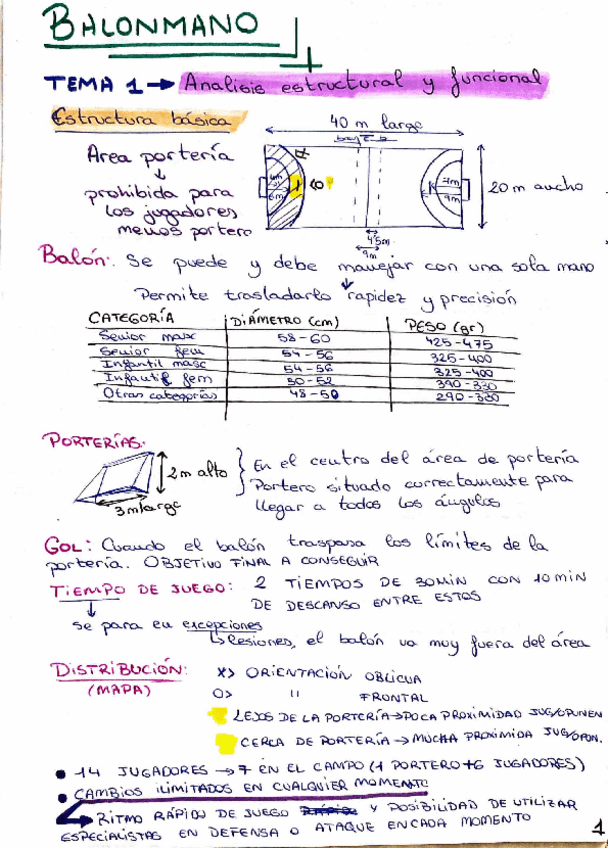 BALONMANO
TEMA 1 → Analisis estructural y funcional
Estructura básica
40 m largo
Area portería
↓
prohibida para
los jugadores
menos portero
20 m ancho
6m
9m
4'5m
9m
Balón: Se puede y debe manejar con una sola mano
Permite trasladarlo rapidez y precisión
CATEGORÍA DIÁMETRO (cm) PESO (gr)
Senior masc 58-60 425-475
Senior fem 54-56 325-400
Infantil masc 54-56 325-400
Infantil fem 50-52 390-330
Otras categorías 48-50 290-330
PORTERÍAS.
2m alto
3m largo
En el centro del área de portería
Portero situado correctamente para
llegar a todos los ángulos
GOL: Cuando el balón traspasa los límites de la
portería. OBJETIVO FINAL A CONSEGUIR
TIEMPO DE JUEGO: 2 TIEMPOS DE 30MIN CON 10 MIN
DE DESCANSO ENTRE ESTOS
↓
se para en excepciones
↳ lesiones, el balón va muy fuera del área
DISTRIBUCIÓN: X> ORIENTACIÓN OBLICUA
(MAPA) O> " FRONTAL
LEJOS DE LA PORTERÍA → POCA PROXIMIDAD JUG/OPONEN
CERCA DE PORTERÍA → MUCHA PROXIMIDA JUG/OPON.
• 14 JUGADORES → 7 EN EL CAMPO (1 PORTERO + 6 JUGADORES)
• CAMBIOS ILIMITADOS EN CUALQUIER MOMENTO
↳ RITMO RÁPIDO DE JUEGO Y POSIBILIDAD DE UTILIZAR
ESPECIALISTAS EN DEFENSA O ATAQUE EN CADA MOMENTO
1